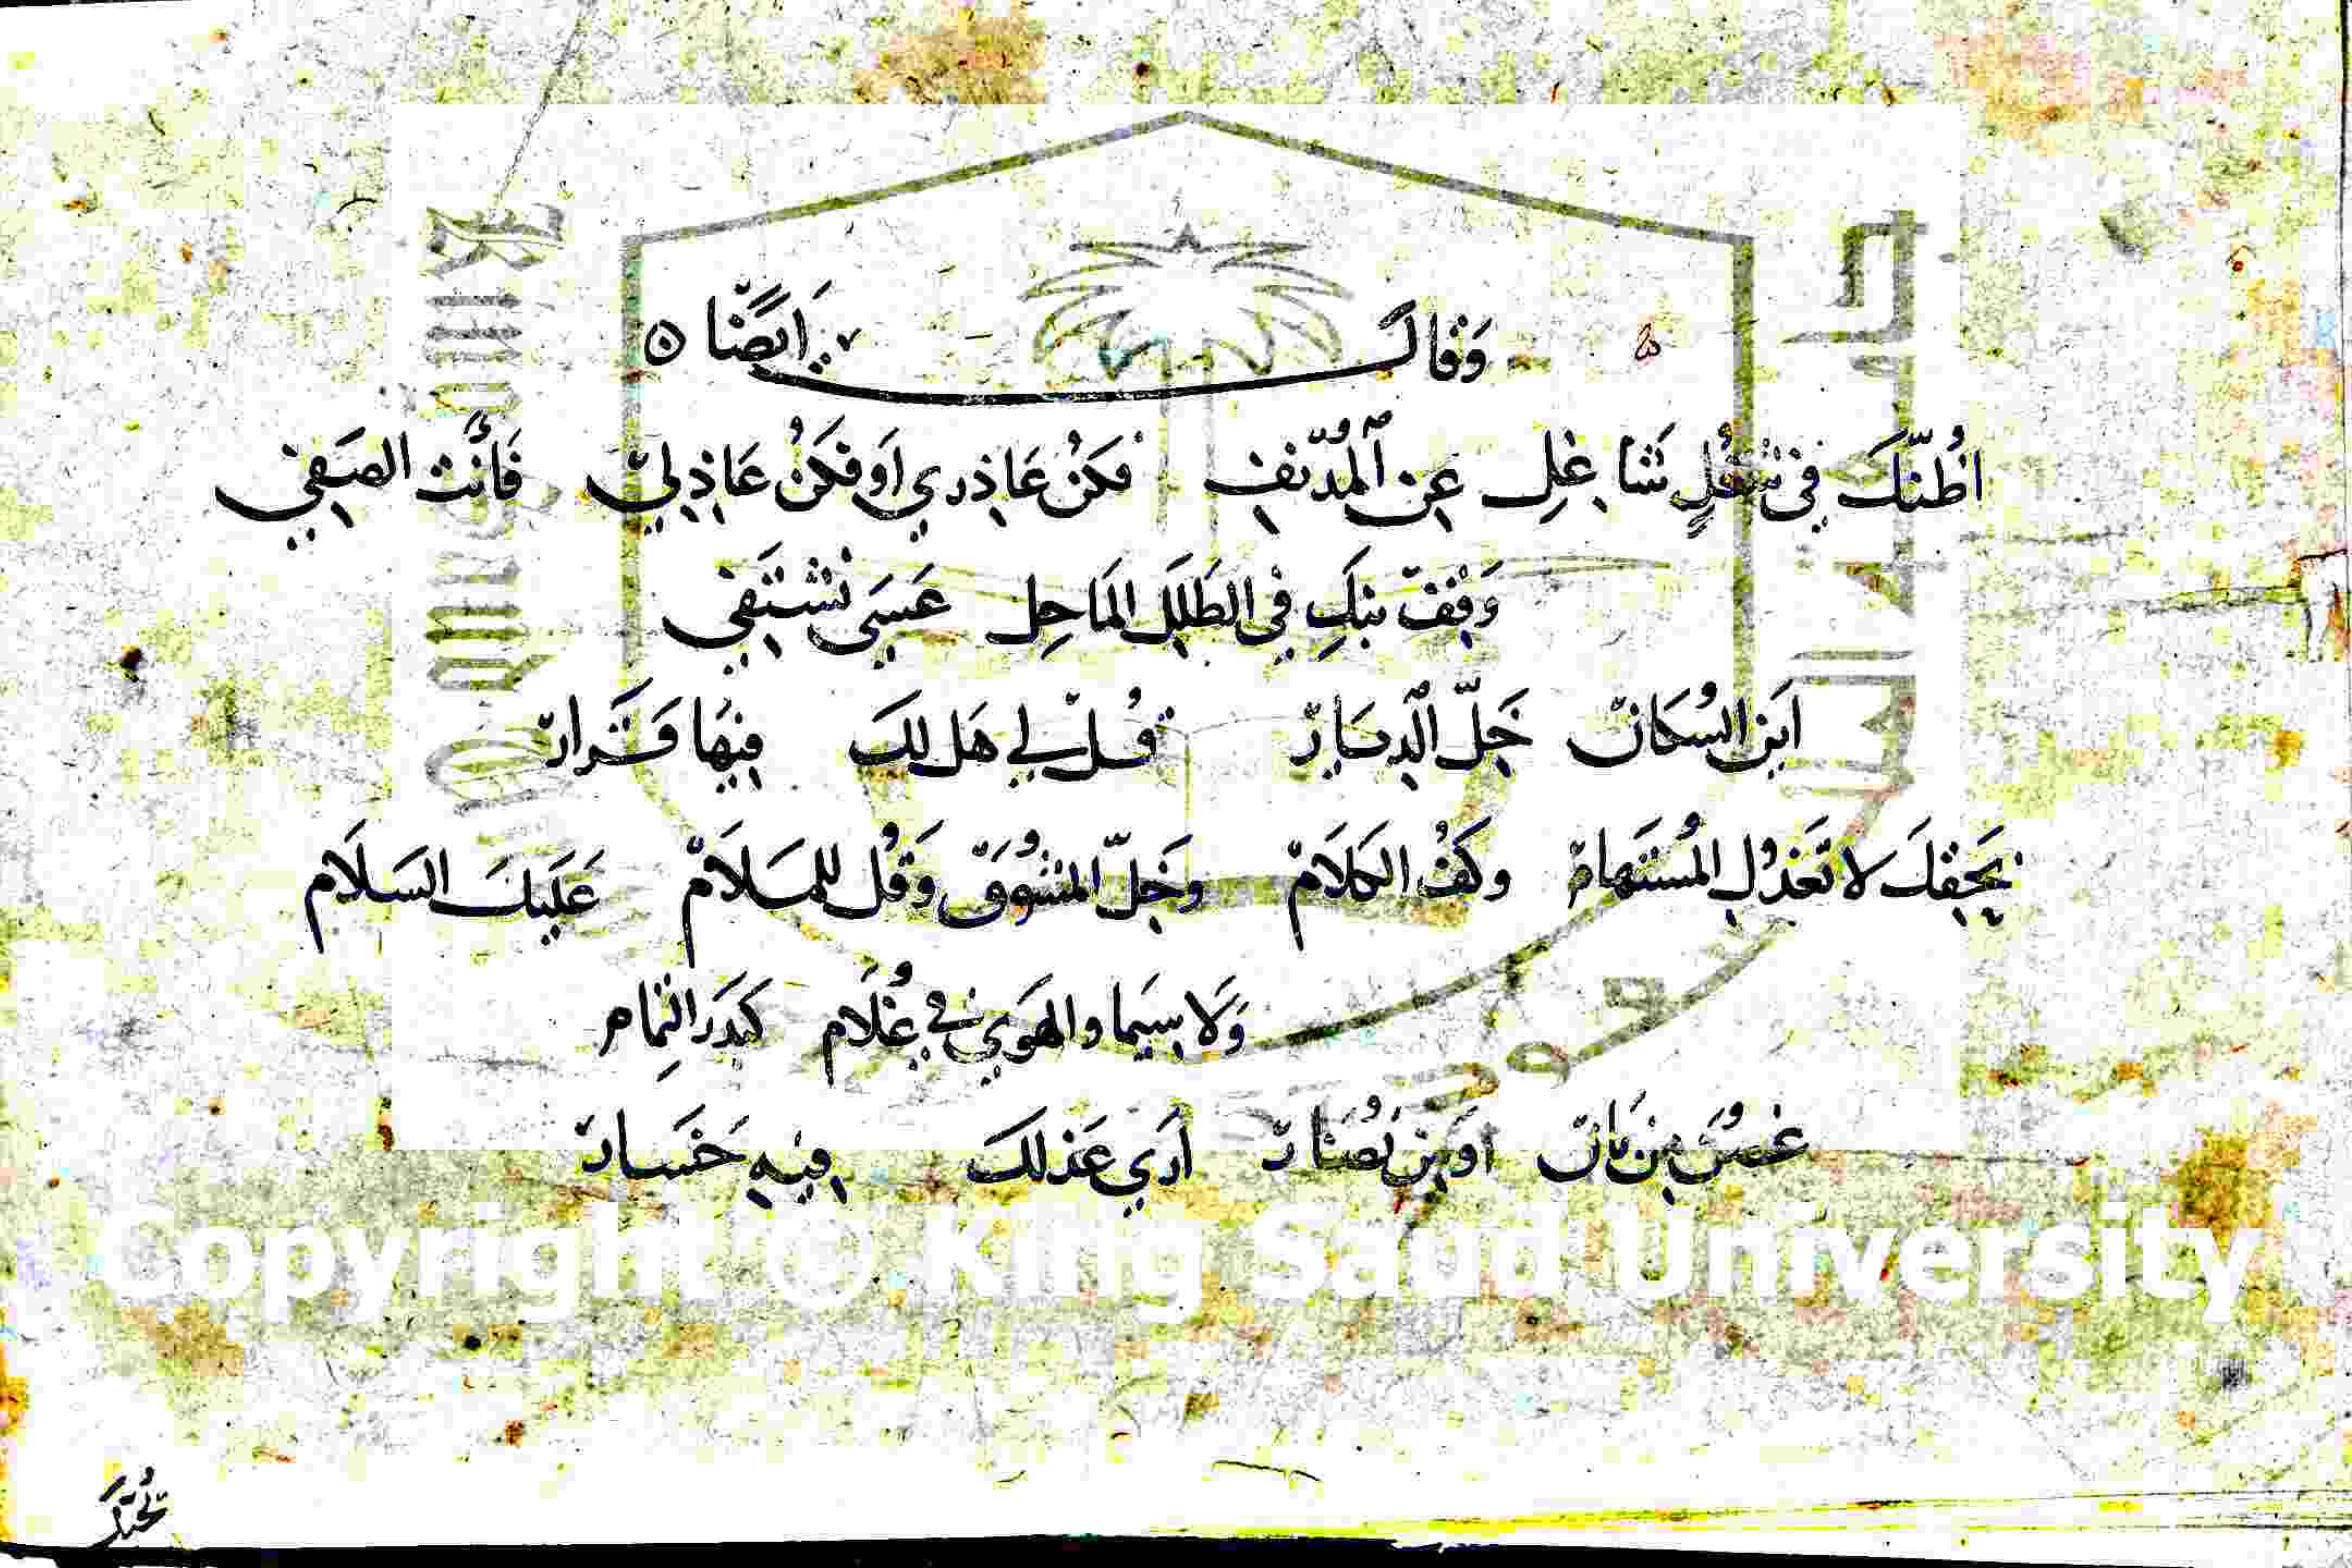 وَقَالَ اَيضًا ٥
اظُنّكَ فِي شُغُلٍ شَاغِلِ عَنِ ٱلْمُدْنَفِ فَكُنْ عَاذِرِي اَو فَكُنْ عَاذِلِي فَأنْتَ الصَفِي
وَقِفْ نبْكِ فِي الطَلَلِ المَاحِل عَسَى نَشْتَفِي
اَينَ السُكان خَلّ الدِيَارْ قُلْ لي هَل لكَ فِيهَا قَرَارْ
بِحَقِكَ لا تَعْذُلِ المُسْتَهَامْ وَكُفّ الكَلَامْ وَخَلّ المَشُوقَ وَقُل للمَلَامْ عَلَيكَ السَلَام
وَلَا سِيَما والهَوَي فِي غُلَام كَبَدرَ التِمام
غصُن مِن بَان اَو مِن نُضَارْ اَرَي عَذلكَ فِيهِ خَسَارْ
Copyright © King Saud University